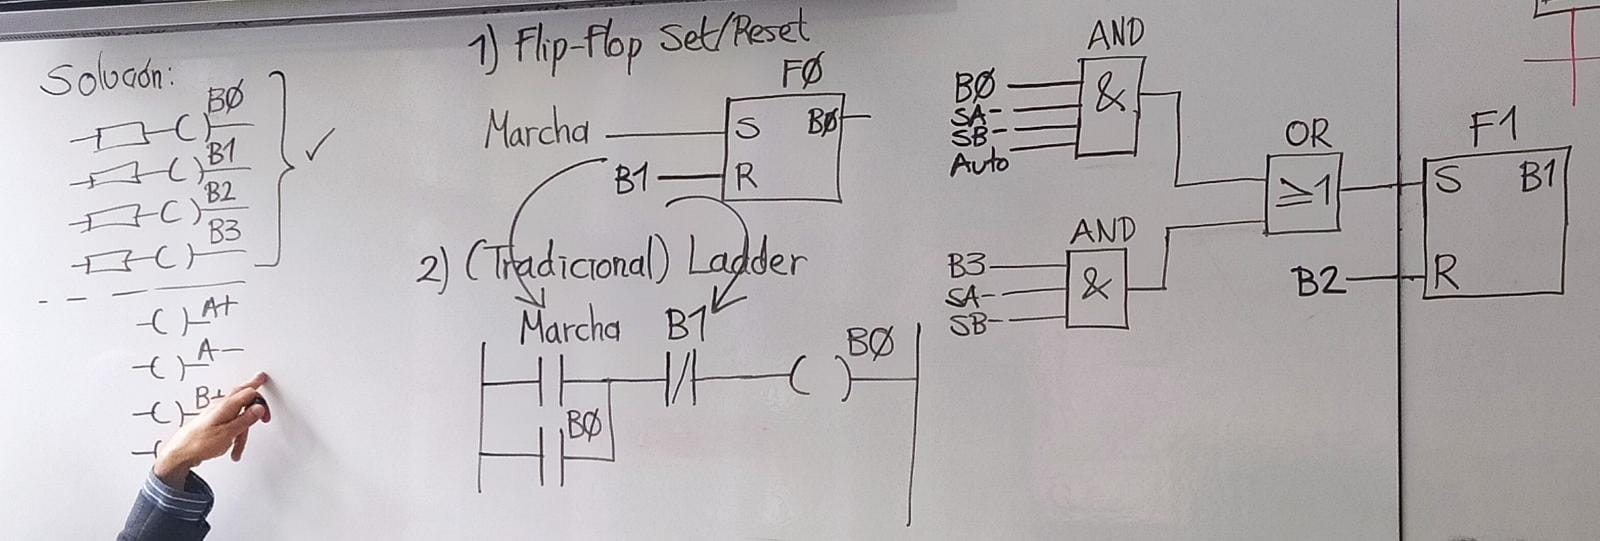 Solución:
BØ
B1
B2
B3
A+
A-
B+
1) Flip-flop Set/Reset
FØ
Marcha
S
BØ
B1
R
2) (Tradicional) Ladder
Marcha
B1
BØ
BØ
AND
BØ
SA-
SB-
Auto
&
OR
≥1
AND
B3
SA-
SB-
&
F1
S
B1
B2
R